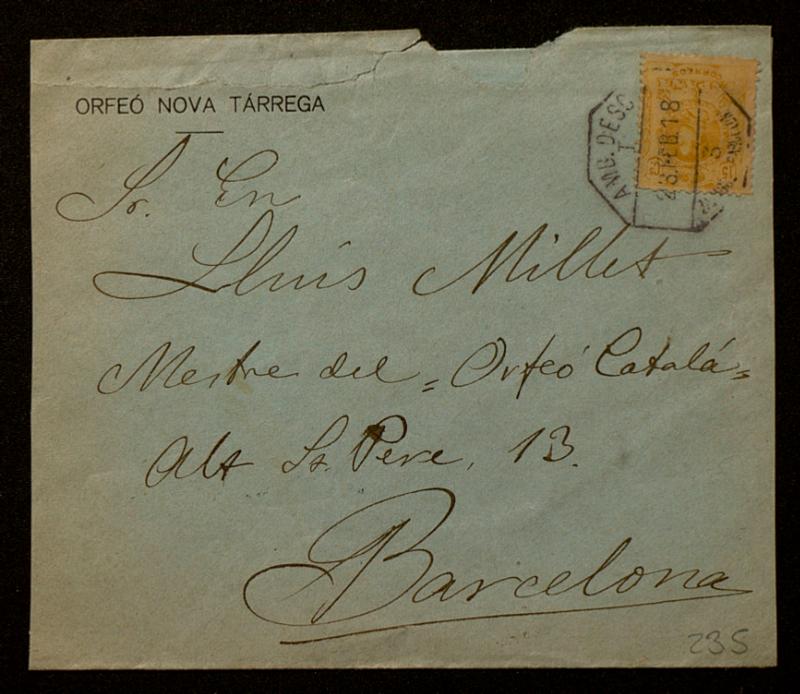 ORFEÓ NOVA TÁRREGA
AMB. DESC
1
FEB. 18
15
CORREOS
Sr. En
Lluis Millet
Mestre del "Orfeó Catalá"
Alt St. Pere, 13.
Barcelona
235